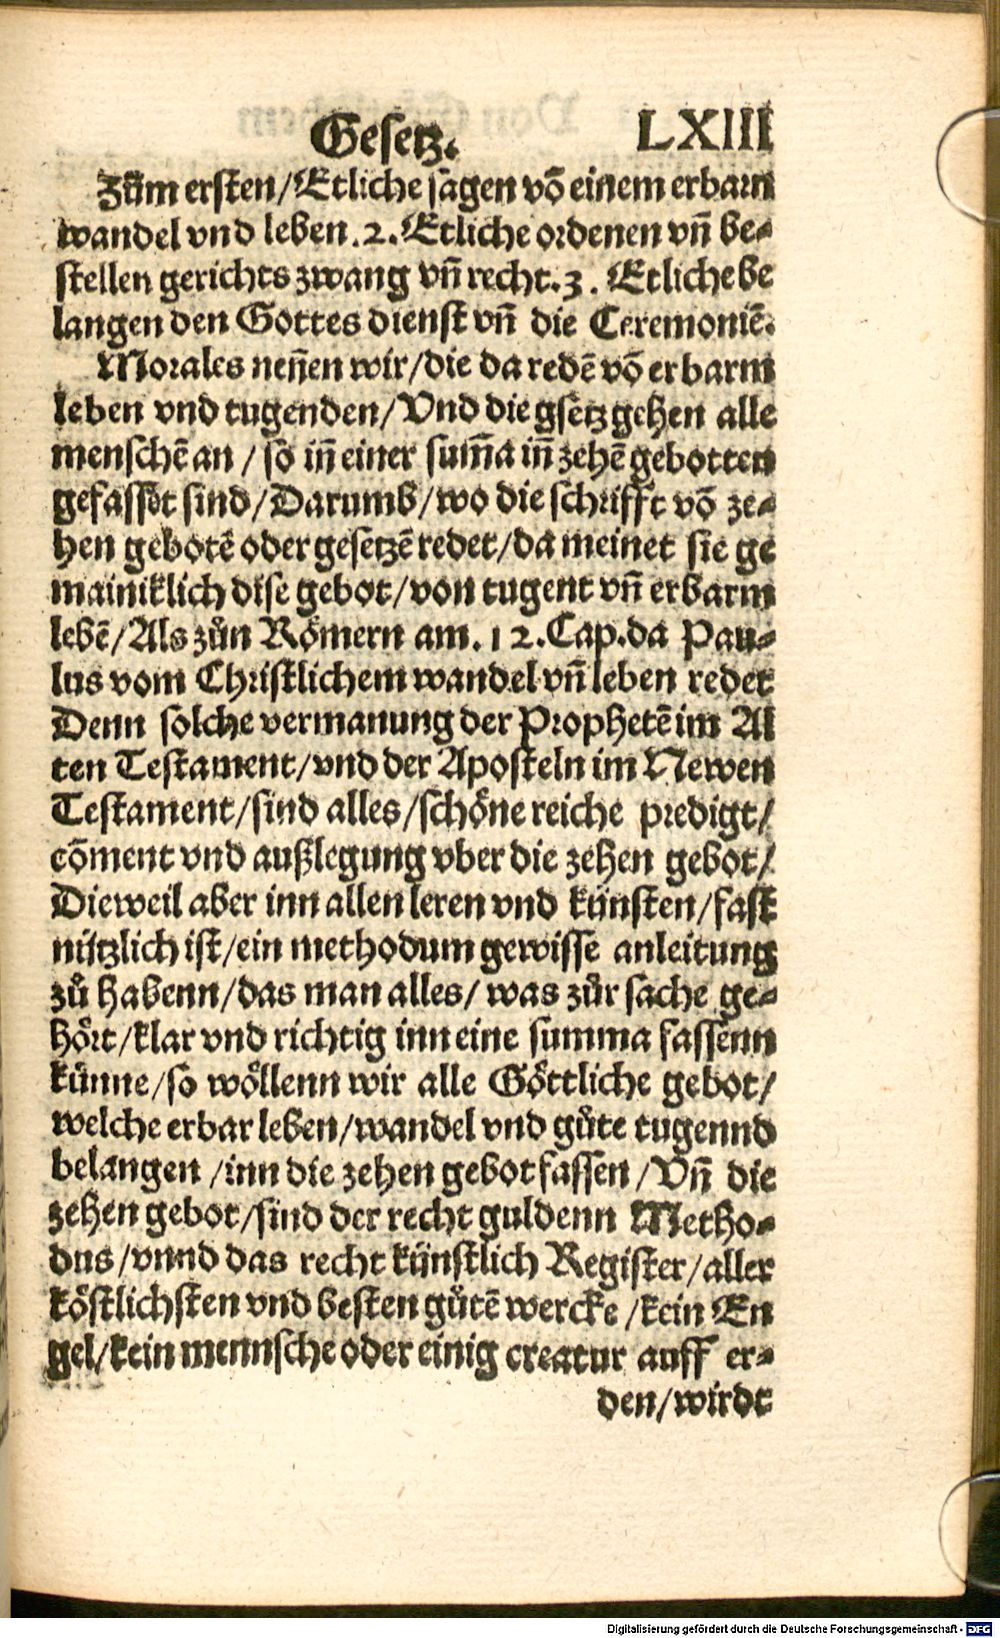 Gesetz. LXIII
Zům ersten/Etliche sagen võ einem erbarn
wandel vnd leben.2.Etliche ordenen vñ be-
stellen gerichts zwang vñ recht.3. Etliche be
langen den Gottes dienst vñ die Ceremoniē.
Morales neñen wir/die da redē võ erbarm
leben vnd tugenden/Vnd die gsetz gehen alle
menschē an / so iñ einer sum̃a iñ zehē gebotten
gefasset sind/Darumb/wo die schrifft võ ze-
hen gebotē oder gesetzē redet/da meinet sie ge
mainiklich dise gebot/von tugent vñ erbarm
lebē/Als zůn Römern am.12.Cap.da Pau-
lus vom Christlichem wandel vñ leben redet
Denn solche vermanung der Prophetē im Al
ten Testament/vnd der Aposteln im Newen
Testament/sind alles/schöne reiche predigt/
cōment vnd außlegung vber die zehen gebot/
Dieweil aber inn allen leren vnd künsten/fast
nützlich ist/ein methodum gewisse anleitung
zů habenn/das man alles/ was zůr sache ge-
hört/klar vnd richtig inn eine summa fassenn
künne/so wöllenn wir alle Göttliche gebot/
welche erbar leben/wandel vnd gůte tugennd
belangen /inn die zehen gebot fassen/Vñ die
zehen gebot/sind der recht guldenn Metho-
dus/vnnd das recht künstlich Register/aller
köstlichsten vnd besten gůtē wercke /kein En
gel/kein mennsche oder einig creatur auff er-
den/wirdt
Digitalisierung gefördert durch die Deutsche Forschungsgemeinschaft - DFG